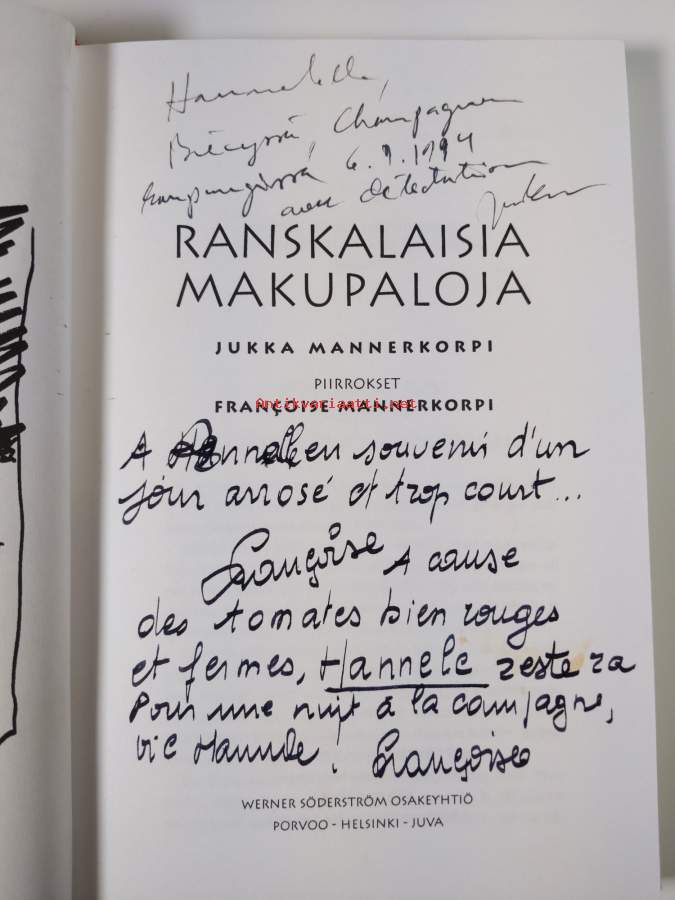 Hannelelle,
Champagnen
6.9.1994
avec
RANSKALAISIA
MAKUPALOJA
JUKKA MANNERKORPI
PIIRROKSET
Antikvariaatti.net
FRANÇOISE MANNERKORPI
A Hannele en souvenir d'un
jour arrosé et trop court...
Françoise A cause
des tomates bien rouges
et fermes, Hannele restera
Pour une nuit à la campagne,
Hannele! Françoise
WERNER SÖDERSTRÖM OSAKEYHTIÖ
PORVOO - HELSINKI - JUVA